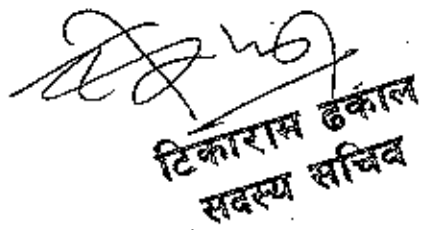 टिकाराम ढकाल
सदस्य सचिव